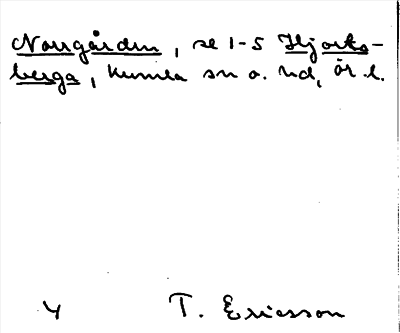 Norrgården, se 1-5 Hjorts-
berga, Kumla sn o. hd, ör l.
4 T. Ericsson